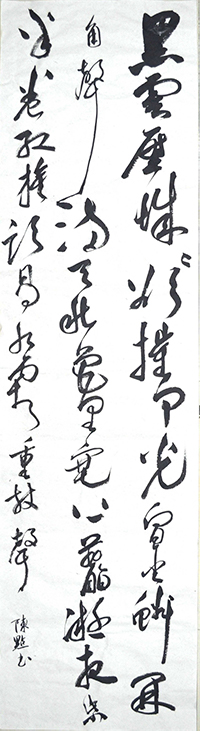 黑雲壓城〻欲摧甲光向鱗開
角聲滿天秋色里塞上燕脂凝夜紫
半卷紅旗臨易水霜重鼓聲
陳書